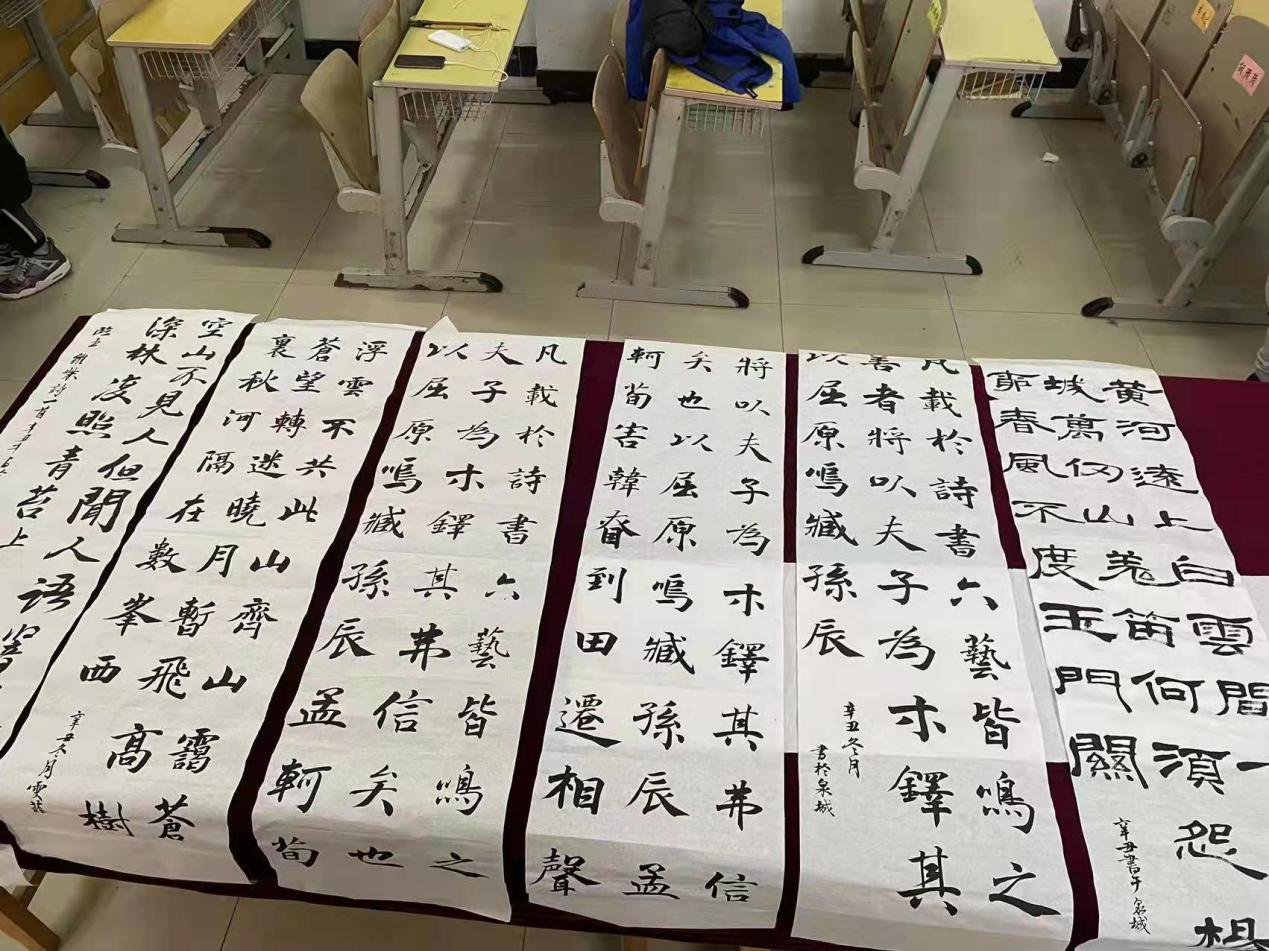 黄河遠上白雲間一
城萬仞山羌笛何須怨楊
柳春風不度玉門關
辛丑書于泉城
凡載於詩書六藝皆鳴之
善者將以夫子為木鐸其
以屈原鳴臧孫辰
辛丑冬月
書於泉城
將以夫子為木鐸其弗信
矣也以屈原鳴臧孫辰孟
軻荀害韓奮到田遷相聲
凡載於詩書六藝皆鳴之
夫子為木鐸其弗信矣也
以屈原鳴臧孫辰孟軻荀
浮雲不共此山齊山靄蒼
蒼望轉迷曉月暫飛高樹
裏秋河隔在數峯西
辛丑冬月雯
空山不見人但聞人語響
深林復照青苔上
詩一首辛丑